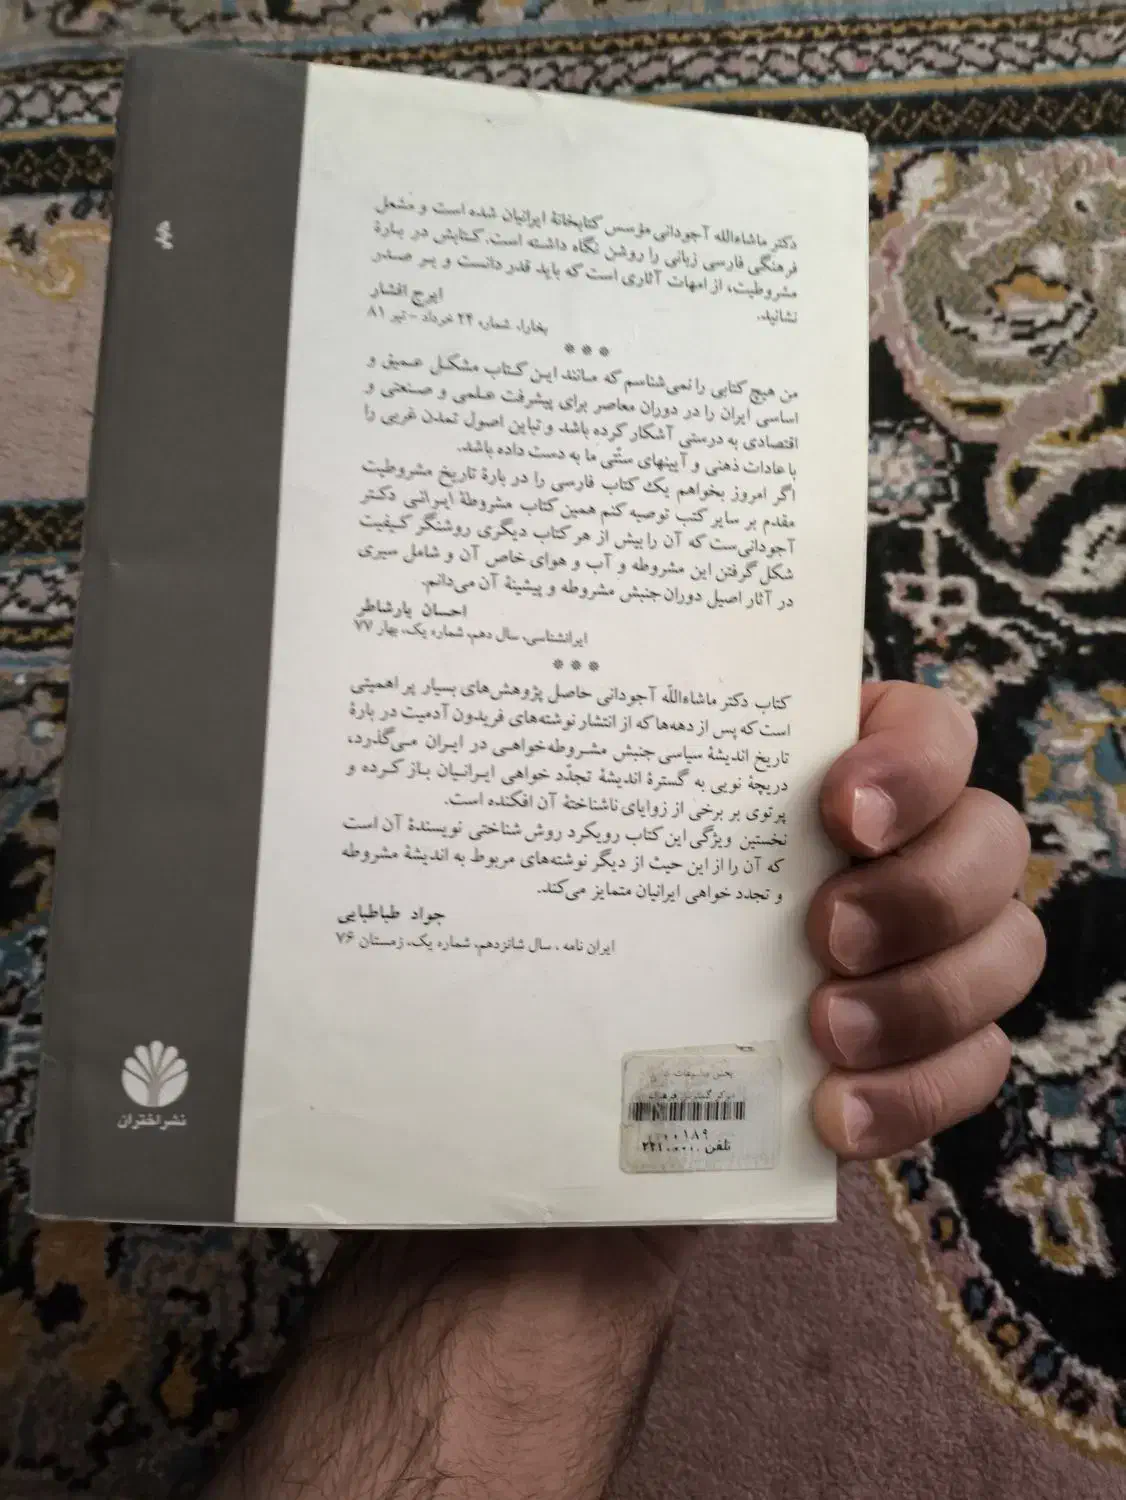 دکتر ماشاءالله آجودانی مؤسس کتابخانهٔ ایرانیان شده است و مشعل
فرهنگی فارسی زبانی را روشن نگاه داشته است. کتابش در بارهٔ
مشروطیت، از امهات آثاری است که باید قدر دانست و بر صدر
نشانید.
ایرج افشار
بخارا، شماره ۲۴ خرداد - تیر ۸۱
***
من هیچ کتابی را نمی‌شناسم که مانند این کتاب مشکل عمیق و
اساسی ایران را در دوران معاصر برای پیشرفت علمی و صنعتی و
اقتصادی به درستی آشکار کرده باشد و تباین اصول تمدن غربی را
با عادات ذهنی و آیینهای سنّتی ما به دست داده باشد.
اگر امروز بخواهم یک کتاب فارسی را در بارهٔ تاریخ مشروطیت
مقدم بر سایر کتب توصیه کنم همین کتاب مشروطهٔ ایرانی دکتر
آجودانی‌ست که آن را بیش از هر کتاب دیگری روشنگر کیفیت
شکل گرفتن این مشروطه و آب و هوای خاص آن و شامل سیری
در آثار اصیل دوران جنبش مشروطه و پیشینهٔ آن می‌دانم.
احسان یارشاطر
ایرانشناسی، سال دهم، شماره یک، بهار ۷۷
***
کتاب دکتر ماشاءاللّه آجودانی حاصل پژوهش‌های بسیار پر اهمیتی
است که پس از دهه‌ها که از انتشار نوشته‌های فریدون آدمیت در بارهٔ
تاریخ اندیشهٔ سیاسی جنبش مشروطه‌خواهی در ایران می‌گذرد،
دریچهٔ نویی به گسترهٔ اندیشهٔ تجدّد خواهی ایرانیان باز کرده و
پرتوی بر برخی از زوایای ناشناختهٔ آن افکنده است.
نخستین ویژگی این کتاب رویکرد روش شناختی نویسندهٔ آن است
که آن را از این حیث از دیگر نوشته‌های مربوط به اندیشهٔ مشروطه
و تجدد خواهی ایرانیان متمایز می‌کند.
جواد طباطبایی
ایران نامه، سال شانزدهم، شماره یک، زمستان ۷۶
نشر اختران
تلفن